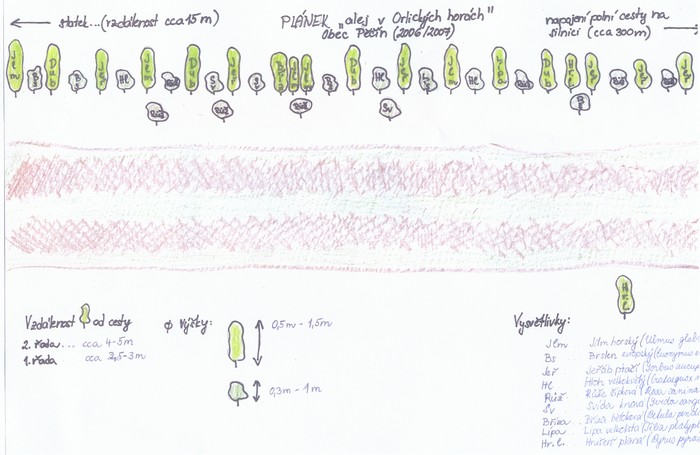 statek...(vzdálenost cca 15 m)
PLÁNEK „alej v Orlických horách"
Obec Pěčín (2006/2007)
napojení polní cesty na
silnici (cca 300m)
Jlm Bs Dub Bs Jeř Hl Jlm Růž Dub Sv Jeř Sv Bříza Jlm Jlm Bs Dub Hl Jeř Bs Jlm Hl Lípa Růž Dub Hr.l. Jeř Růž Jeř Růž
Růž Růž Sv Bs
Hr.l.
Vzdálenost od cesty
2. řada... cca 4-5m
1. řada cca 2,5-3m
φ Výšky:
0,5m - 1,5m
0,3m - 1m
Vysvětlivky:
Jlm Jilm horský (Ulmus glab
Bs Brslen evropský (Euonymus e
Jeř Jeřáb ptačí (Sorbus aucup
Hl Hloh velkokvětý (Crataegus
Růž Růže šípková (Rosa canina
Sv Svída krvavá (Svida sang
Bříza Bříza bělokorá (Betula pend
Lípa Lípa velkolistá (Tilia platyp
Hr.l. Hrušeň planá (Pyrus pyras